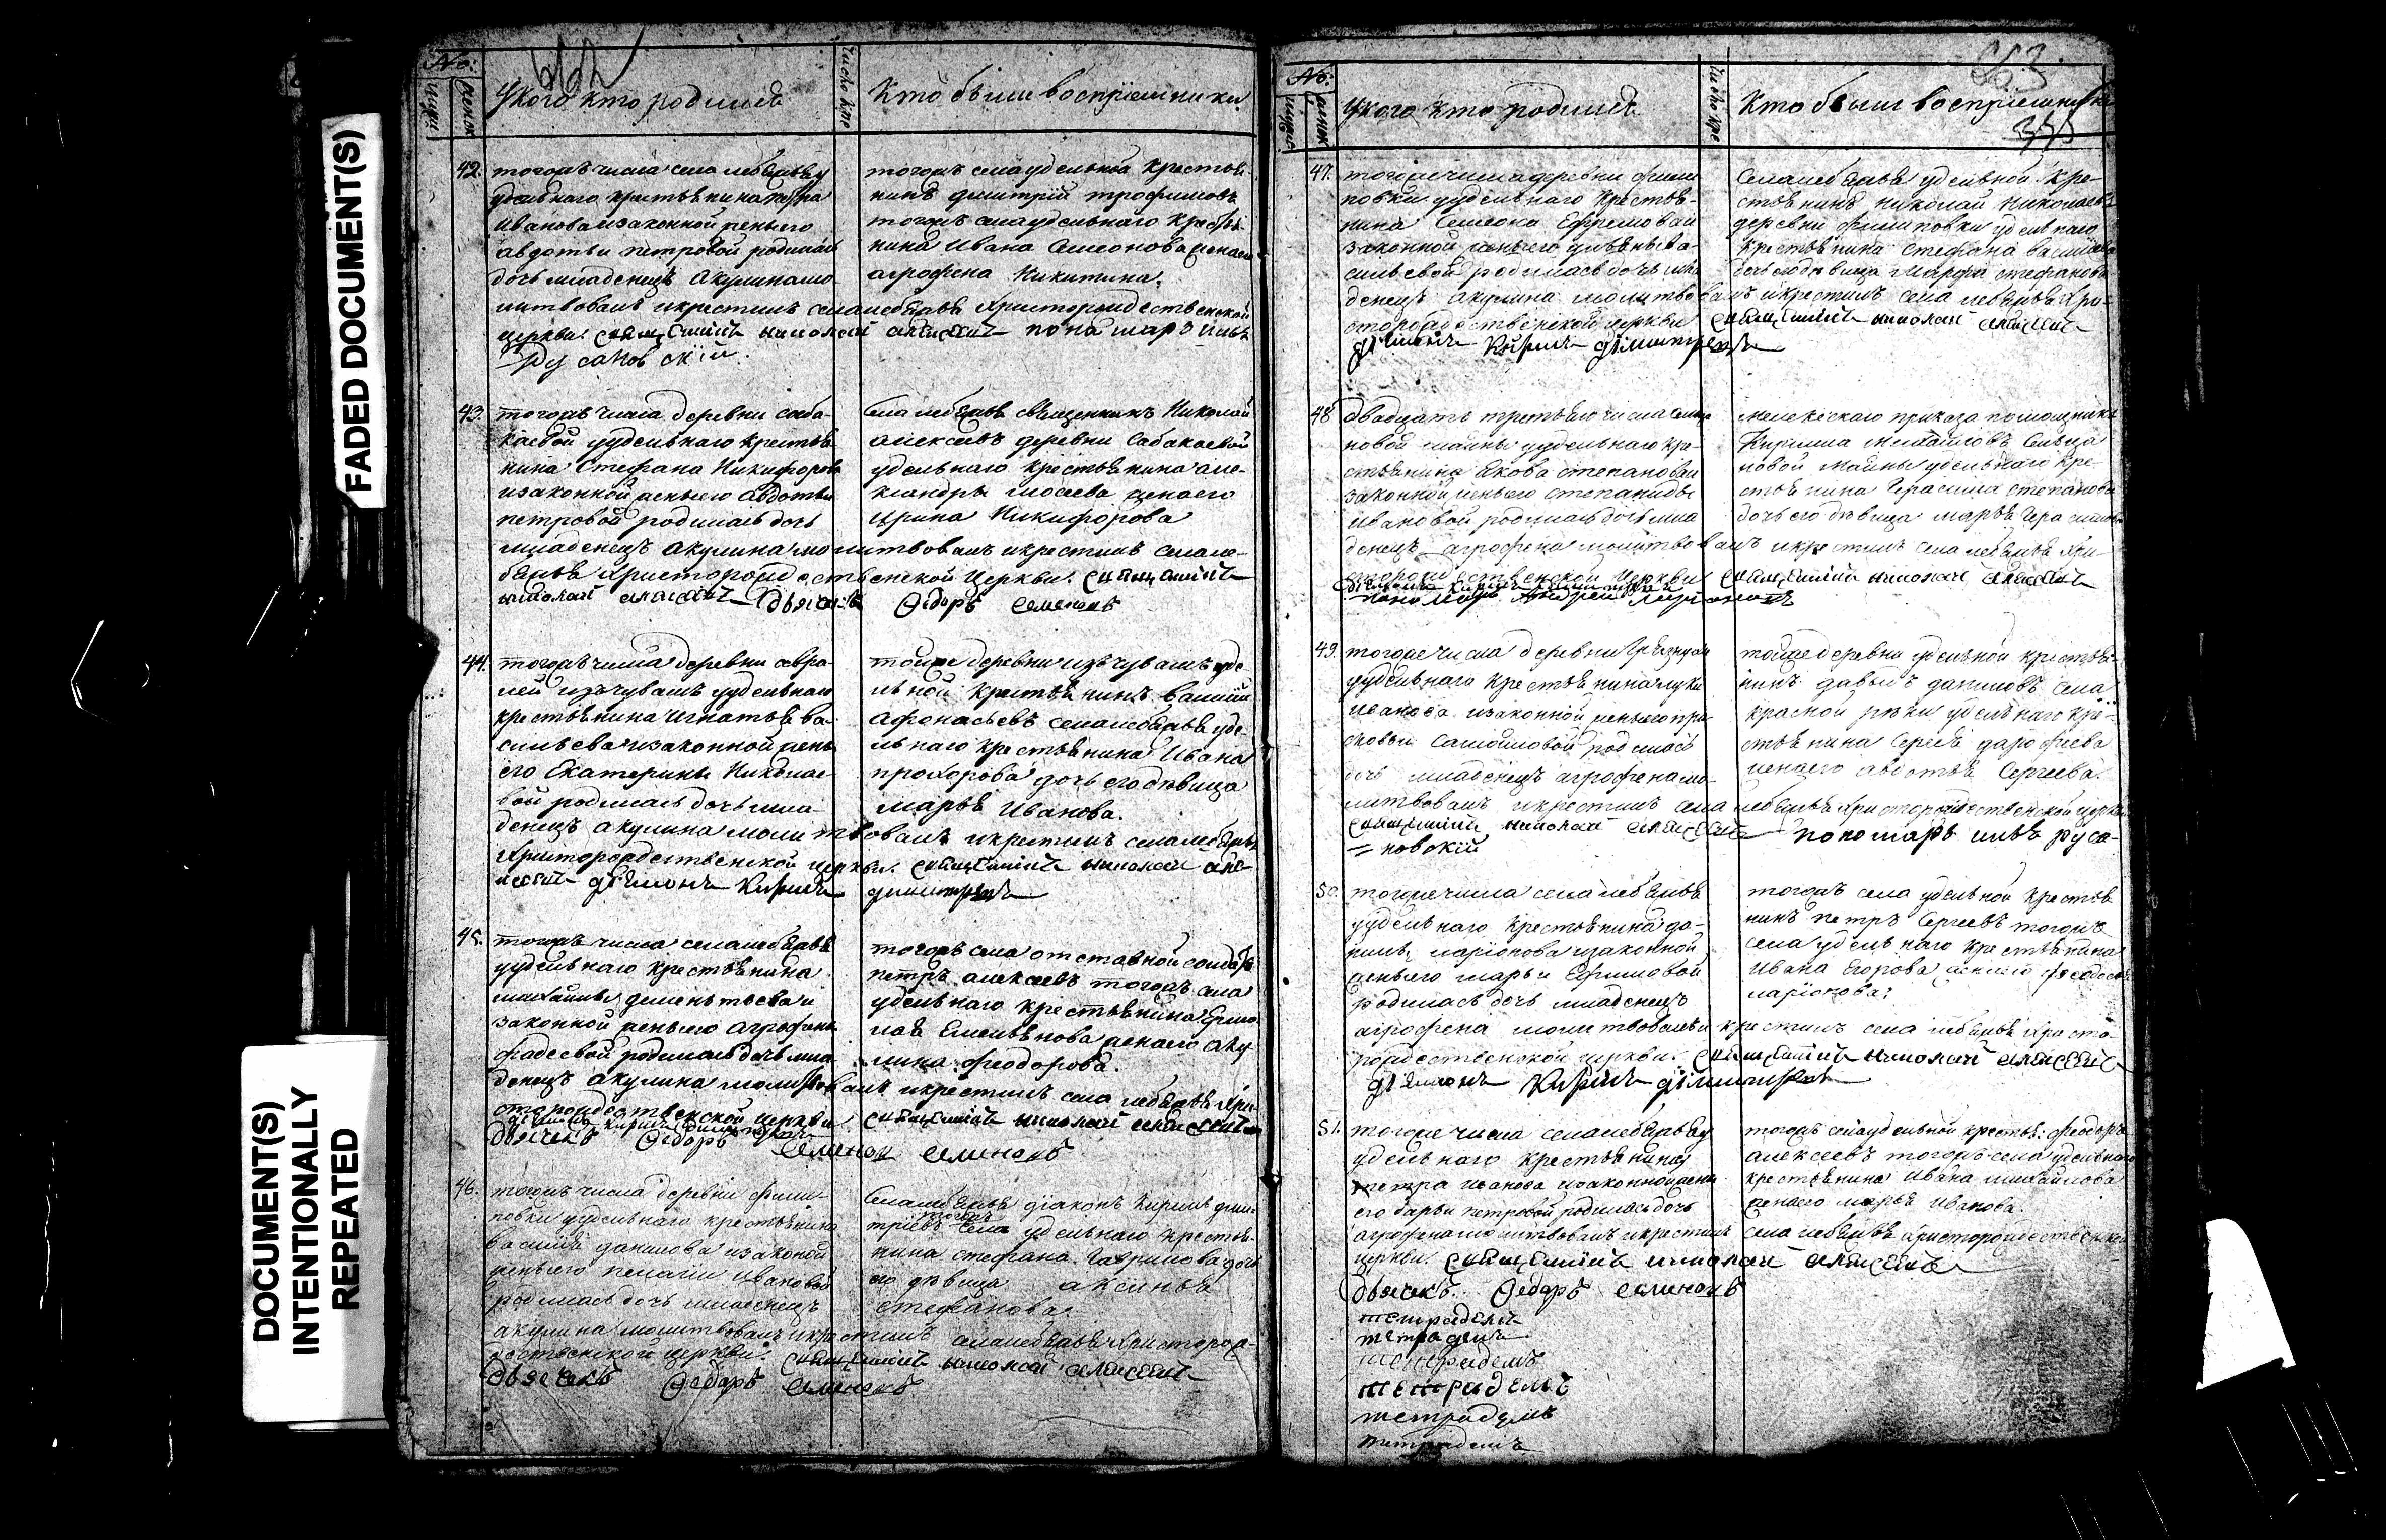 FADED DOCUMENT(S)
DOCUMENT(S)
INTENTIONALLY
REPEATED
No:
женск
У кого кто родился
Кто были восприемники
42. тогожъ числа села лебяжья у
удельнаго крестьянина
Иванова и законной жены его
авдотьи петровой родилась
дочь младенецъ Акулина мо-
литвовалъ и крестилъ села лебяжья Христорождественской
церкви священникъ николай алексеевъ пономарь илья
Русановский
тогожъ села удельной крестья-
нинъ димитрий трофимовъ
тогожъ села удельнаго крестья-
нина Ивана Симеонова жена его
агрофена Никитина.
43. тогожъ числа деревни саба-
каевой у удельнаго крестья-
нина Стефана Никифорова
и законной жены его Авдотьи
петровой родилась дочь
младенецъ акулина молитвовалъ и крестилъ села ле-
бяжья Христорождественской Церкви. священникъ
николай алексеевъ дьячекъ Федоръ Семеновъ
Села лебяжья священникъ Николай
алексеевъ деревни Сабакаевой
удельнаго крестьянина але-
ксандры моseва жена его
Ирина Никифорова
44. тогожъ числа деревни авра-
лей изъ чувашъ у удельнаго
крестьянина игнатья ва-
сильева и законной жены
его Екатерины Николае-
вой родилась дочь мла-
денецъ акулина молитвовалъ и крестилъ села лебяжья
Христорождественской церкви. священникъ николай але-
ксеевъ диаконъ Кирилъ димитриевъ
тойже деревни изъ чувашъ уде-
льной крестьянинъ василий
Афонасьевъ села лебяжья уде-
льнаго крестьянина Ивана
прохорова дочь его девица
марья Иванова.
45. тогожъ числа села лебяжья
у удельнаго крестьянина
михайлы дементьева и
законной жены его агрофены
фадеевой родилась дочь мла-
денецъ акулина молитвовалъ и крестилъ села лебяжья Хри-
сторождественской церкви священникъ николай алексеевъ
диаконъ Кирилъ димитриевъ
дьячекъ Федоръ Семенов семеновъ
тогожъ села отставной солдатъ
петръ алексеевъ тогожъ села
удельнаго крестьянина Ермо-
лая Емельянова жена его аку
лина феодорова.
46. тогожъ числа деревни фили-
повки у удельнаго крестьянина
василия данилова и законой
жены его пелагии ивановой
родилась дочь младенецъ
акулина молитвовалъ и крестилъ села лебяжья Христорож-
дественской церкви. священникъ николай алексеевъ
дьячекъ Федоръ Семеновъ
Села лебяжья диаконъ Кирилъ дими-
триевъ тогожъ села удельнаго крестья-
нина стефана Гаврилова дочь
его девица аксинья
стефанова.
863
No:
женск
У кого кто родился
Кто были восприемники
47. тогоже числа деревни фили
повки у удельнаго крестья-
нина Симеона Ефремова и
законной жены его ульяны ва-
сильевой родилась дочь мла
денецъ акулина молитвовалъ и крестилъ села лебяжья Хри-
сторождественской церкви священникъ николай алексеевъ
диаконъ Кирилъ димитриевъ
Села лебяжья удельной кре-
стьянинъ николай николаевъ
деревни филиповки удельнаго
крестьянина стефана васильева
дочь его девица марфа стефанова
48. двадцать третьяго числа сельца
новой майны у удельнаго кре-
стьянина Якова степанова и
законной жены его степаниды
ивановой родилась дочь мла
денецъ агрофена молитвовалъ и крестилъ села лебяжья Хри
сторождественской Церкви священникъ николай алексеевъ
пономарь Андрей
мелекескаго приказа помощникъ
Кирилла михайловъ Сельца
новой майны удельнаго кре-
стьянина Герасима степанова
дочь его девица марья Герасимова
49. тогоже числа деревни Грязнухи
у удельнаго крестьянина луки
иванова и законной жены его пра
сковьи Самойловой родилась
дочь младенецъ агрофена мо-
литвовалъ и крестилъ села лебяжья Христорождественской церкви
священникъ николай алексеевъ пономарь илья руса-
= новский
тойже деревни удельной крестья-
нинъ давыдъ даниловъ села
красной реки удельнаго кре-
стьянина Сергея дарофеева
жена его авдотья Сергеева.
50. тогоже числа села лебяжья
у удельнаго крестьянина да-
нилы ларионова и законной
жены его марьи Ефимовой
родилась дочь младенецъ
агрофена молитвовалъ и крестилъ села лебяжья Христо-
рождественской церкви. священникъ николай алексеевъ
диаконъ Кирилъ димитриевъ
тогожъ села удельной крестья
нинъ петръ Сергеевъ тогожъ
села удельнаго крестьянина
Ивана Егорова жена его феодосья
ларионова:
51. тогоже числа села лебяжья у
удельнаго крестьянина
петра иванова и законной жены
его дарьи петровой родилась дочь
агрофена молитвовалъ и крестилъ села лебяжья христорождественской
церкви. священникъ николай алексеевъ
дьячекъ. Федоръ семеновъ
тогожъ села удельной крестья: феодоръ
алексеевъ тогожъ села удельнаго
крестьянина Ивана михайлова
жена его марья Иванова.